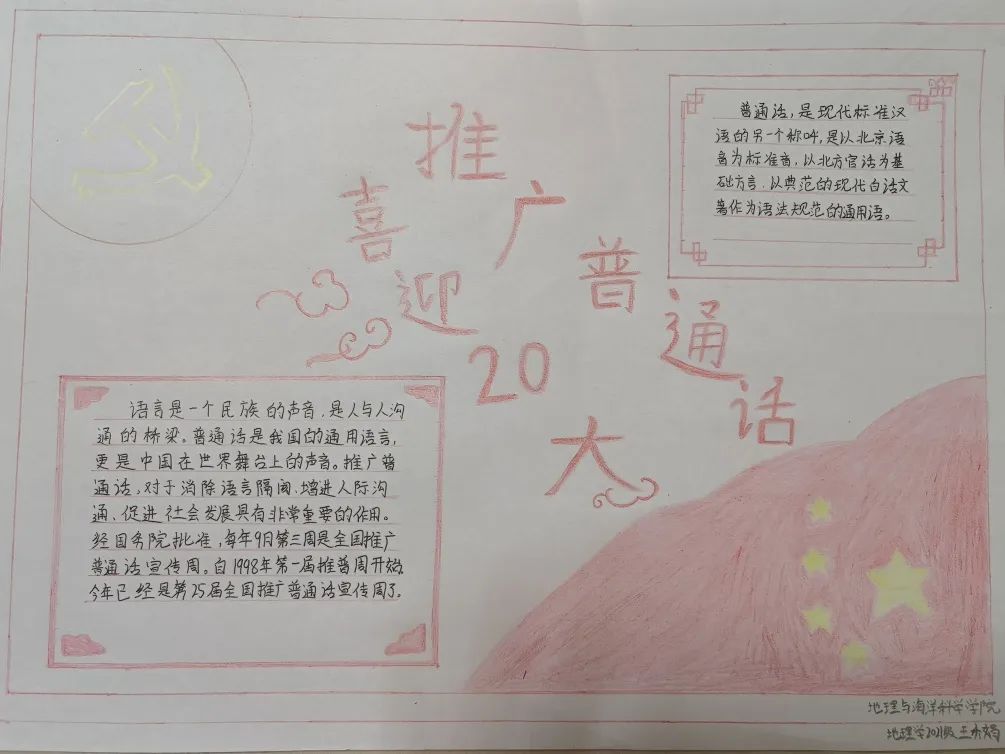 推广普通话
喜迎20大
普通话，是现代标准汉
语的另一个称呼，是以北京语
音为标准音，以北方官话为基
础方言，以典范的现代白话文
著作为语法规范的通用语。
语言是一个民族的声音，是人与人沟
通的桥梁。普通话是我国的通用语言，
更是中国在世界舞台上的声音。推广普
通话，对于消除语言隔阂、增进人际沟
通、促进社会发展具有非常重要的作用。
经国务院批准，每年9月第三周是全国推广
普通话宣传周。自1998年第一届推普周开始，
今年已经是第25届全国推广普通话宣传周了。
地理与海洋科学学院
地理学2021级 王